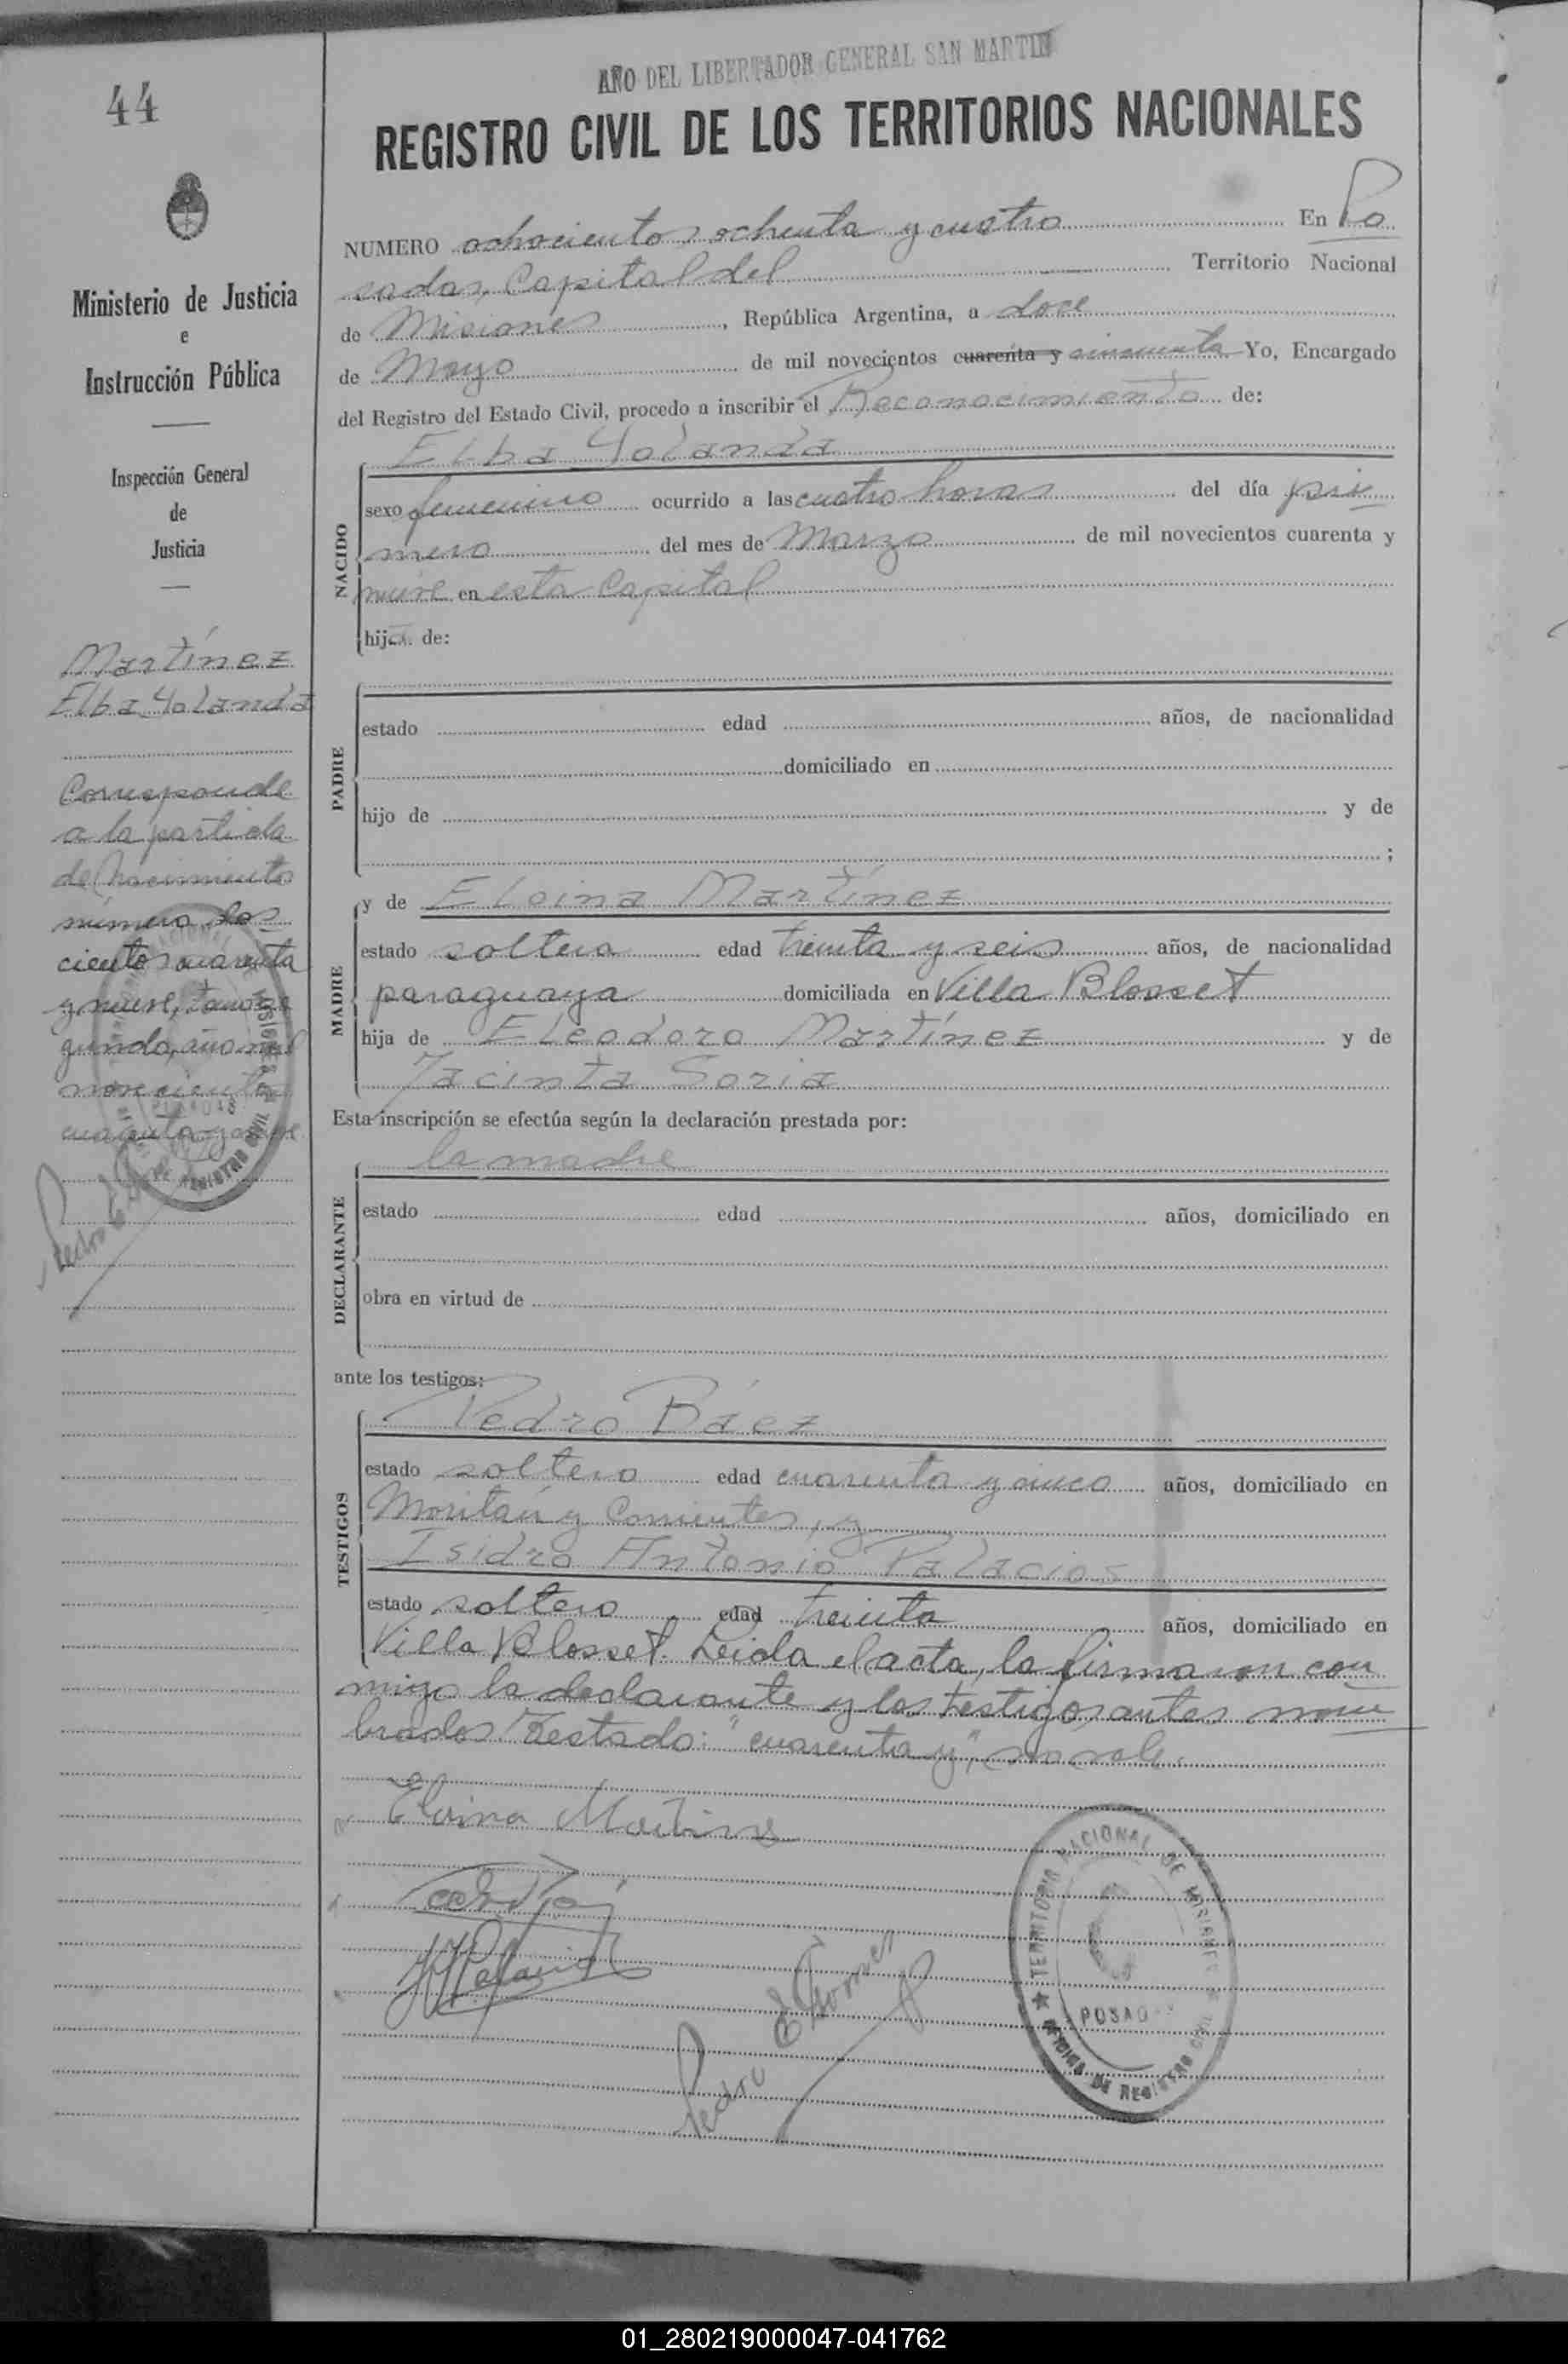 44
AÑO DEL LIBERTADOR GENERAL SAN MARTIN
REGISTRO CIVIL DE LOS TERRITORIOS NACIONALES
Ministerio de Justicia
e
Instrucción Pública
Inspección General
de
Justicia
Martínez
Elba Yolanda
Corresponde
a la partida
de Nacimiento
número dos
cientos cuarenta
y nueve, tomo se
gundo, año mil
novecientos
cuarenta y nueve
NUMERO ochocientos ochenta y cuatro En Po
sadas, Capital del Territorio Nacional
de Misiones, República Argentina, a doce
de Mayo de mil novecientos cuarenta y cincuenta Yo, Encargado
del Registro del Estado Civil, procedo a inscribir el Reconocimiento de:
Elba Yolanda
NACIDO
sexo femenino ocurrido a las cuatro horas del día pri
mero del mes de Marzo de mil novecientos cuarenta y
nueve en esta Capital
hija de:
PADRE
estado edad años, de nacionalidad
domiciliado en
hijo de y de
;
y de Eloina Martínez
MADRE
estado soltera edad treinta y seis años, de nacionalidad
paraguaya domiciliada en Villa Blosset
hija de Eleodoro Martínez y de
Jacinta Soria
Esta inscripción se efectúa según la declaración prestada por:
la madre
DECLARANTE
estado edad años, domiciliado en
obra en virtud de
ante los testigos:
Pedro Báez
TESTIGOS
estado soltero edad cuarenta y cinco años, domiciliado en
y Corrientes, y
Isidro Antonio Palacios
estado soltero edad treinta años, domiciliado en
Villa Blosset. Leida el acta, la firmaron con
migo la declarante y los testigos antes nom
brados. Testado: "cuarenta y", no vale.
Pedro E
TERRITORIO NACIONAL DE MISIONES
POSAD
OFICINA DE REGISTRO CIVIL
01_280219000047-041762